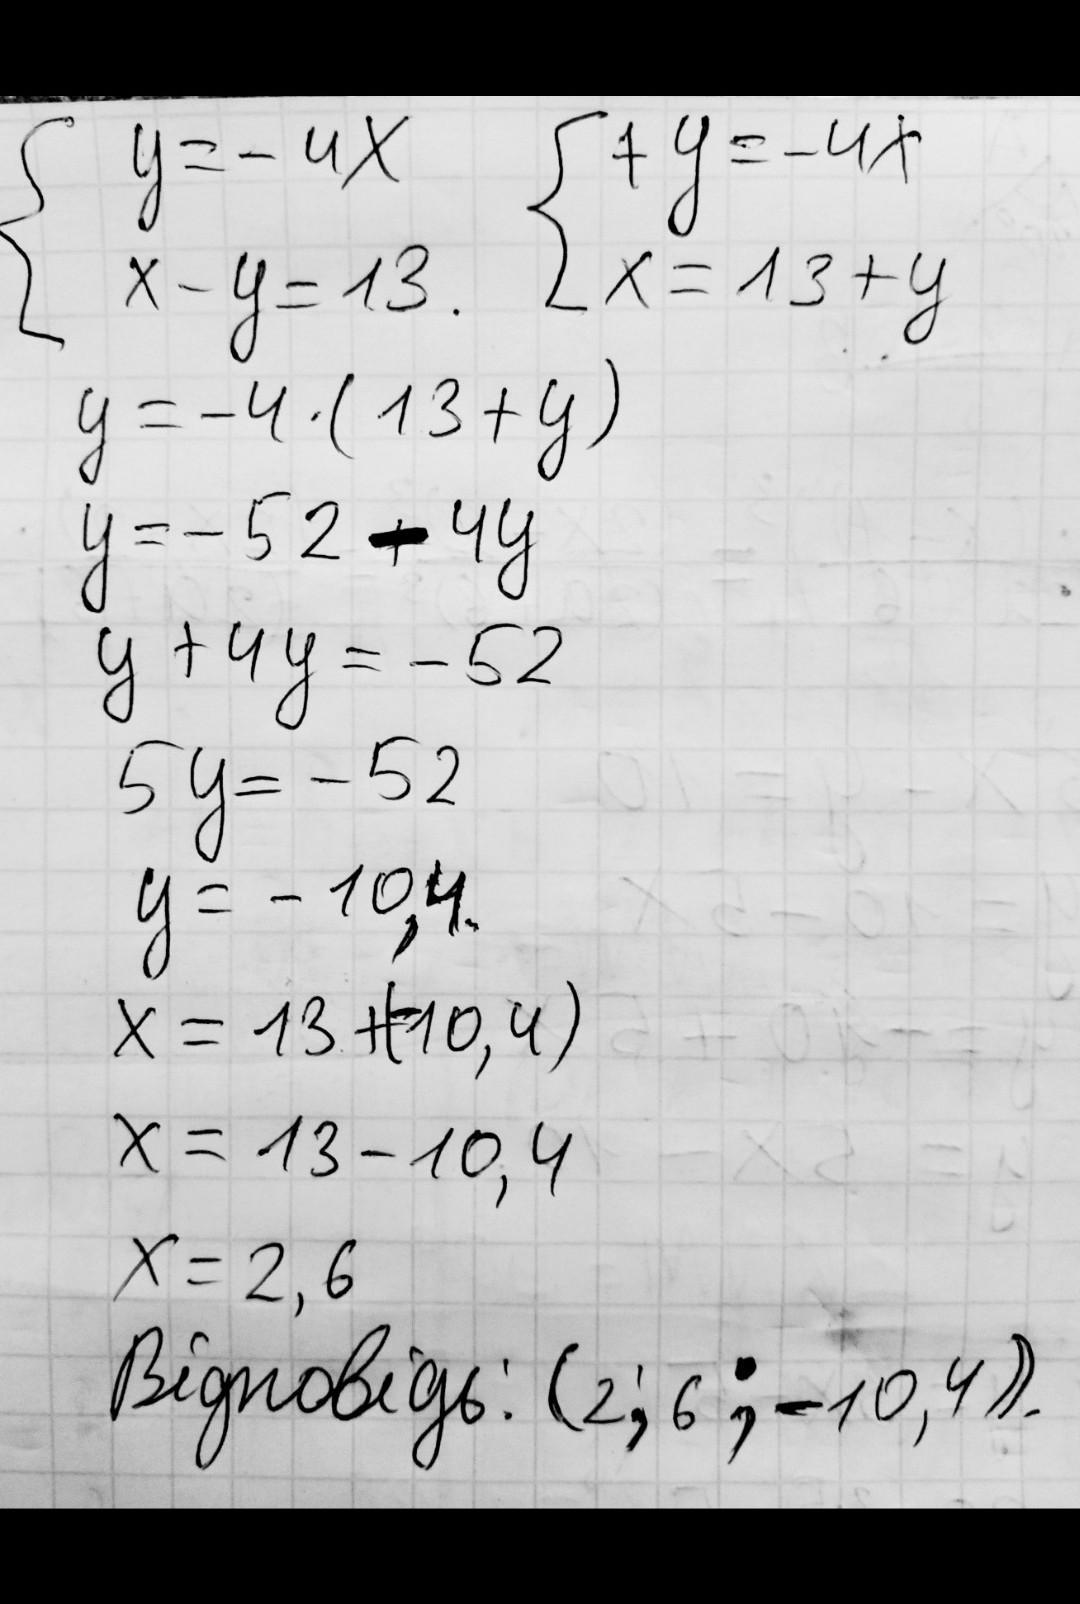 y=-4x
x-y=13.
+y=-4x
x=13+y
y=-4·(13+y)
y=-52-4y
y+4y=-52
5y=-52
y=-10,4.
x=13+(-10,4)
x=13-10,4
x=2,6
Відповідь: (2;6;-10,4)).